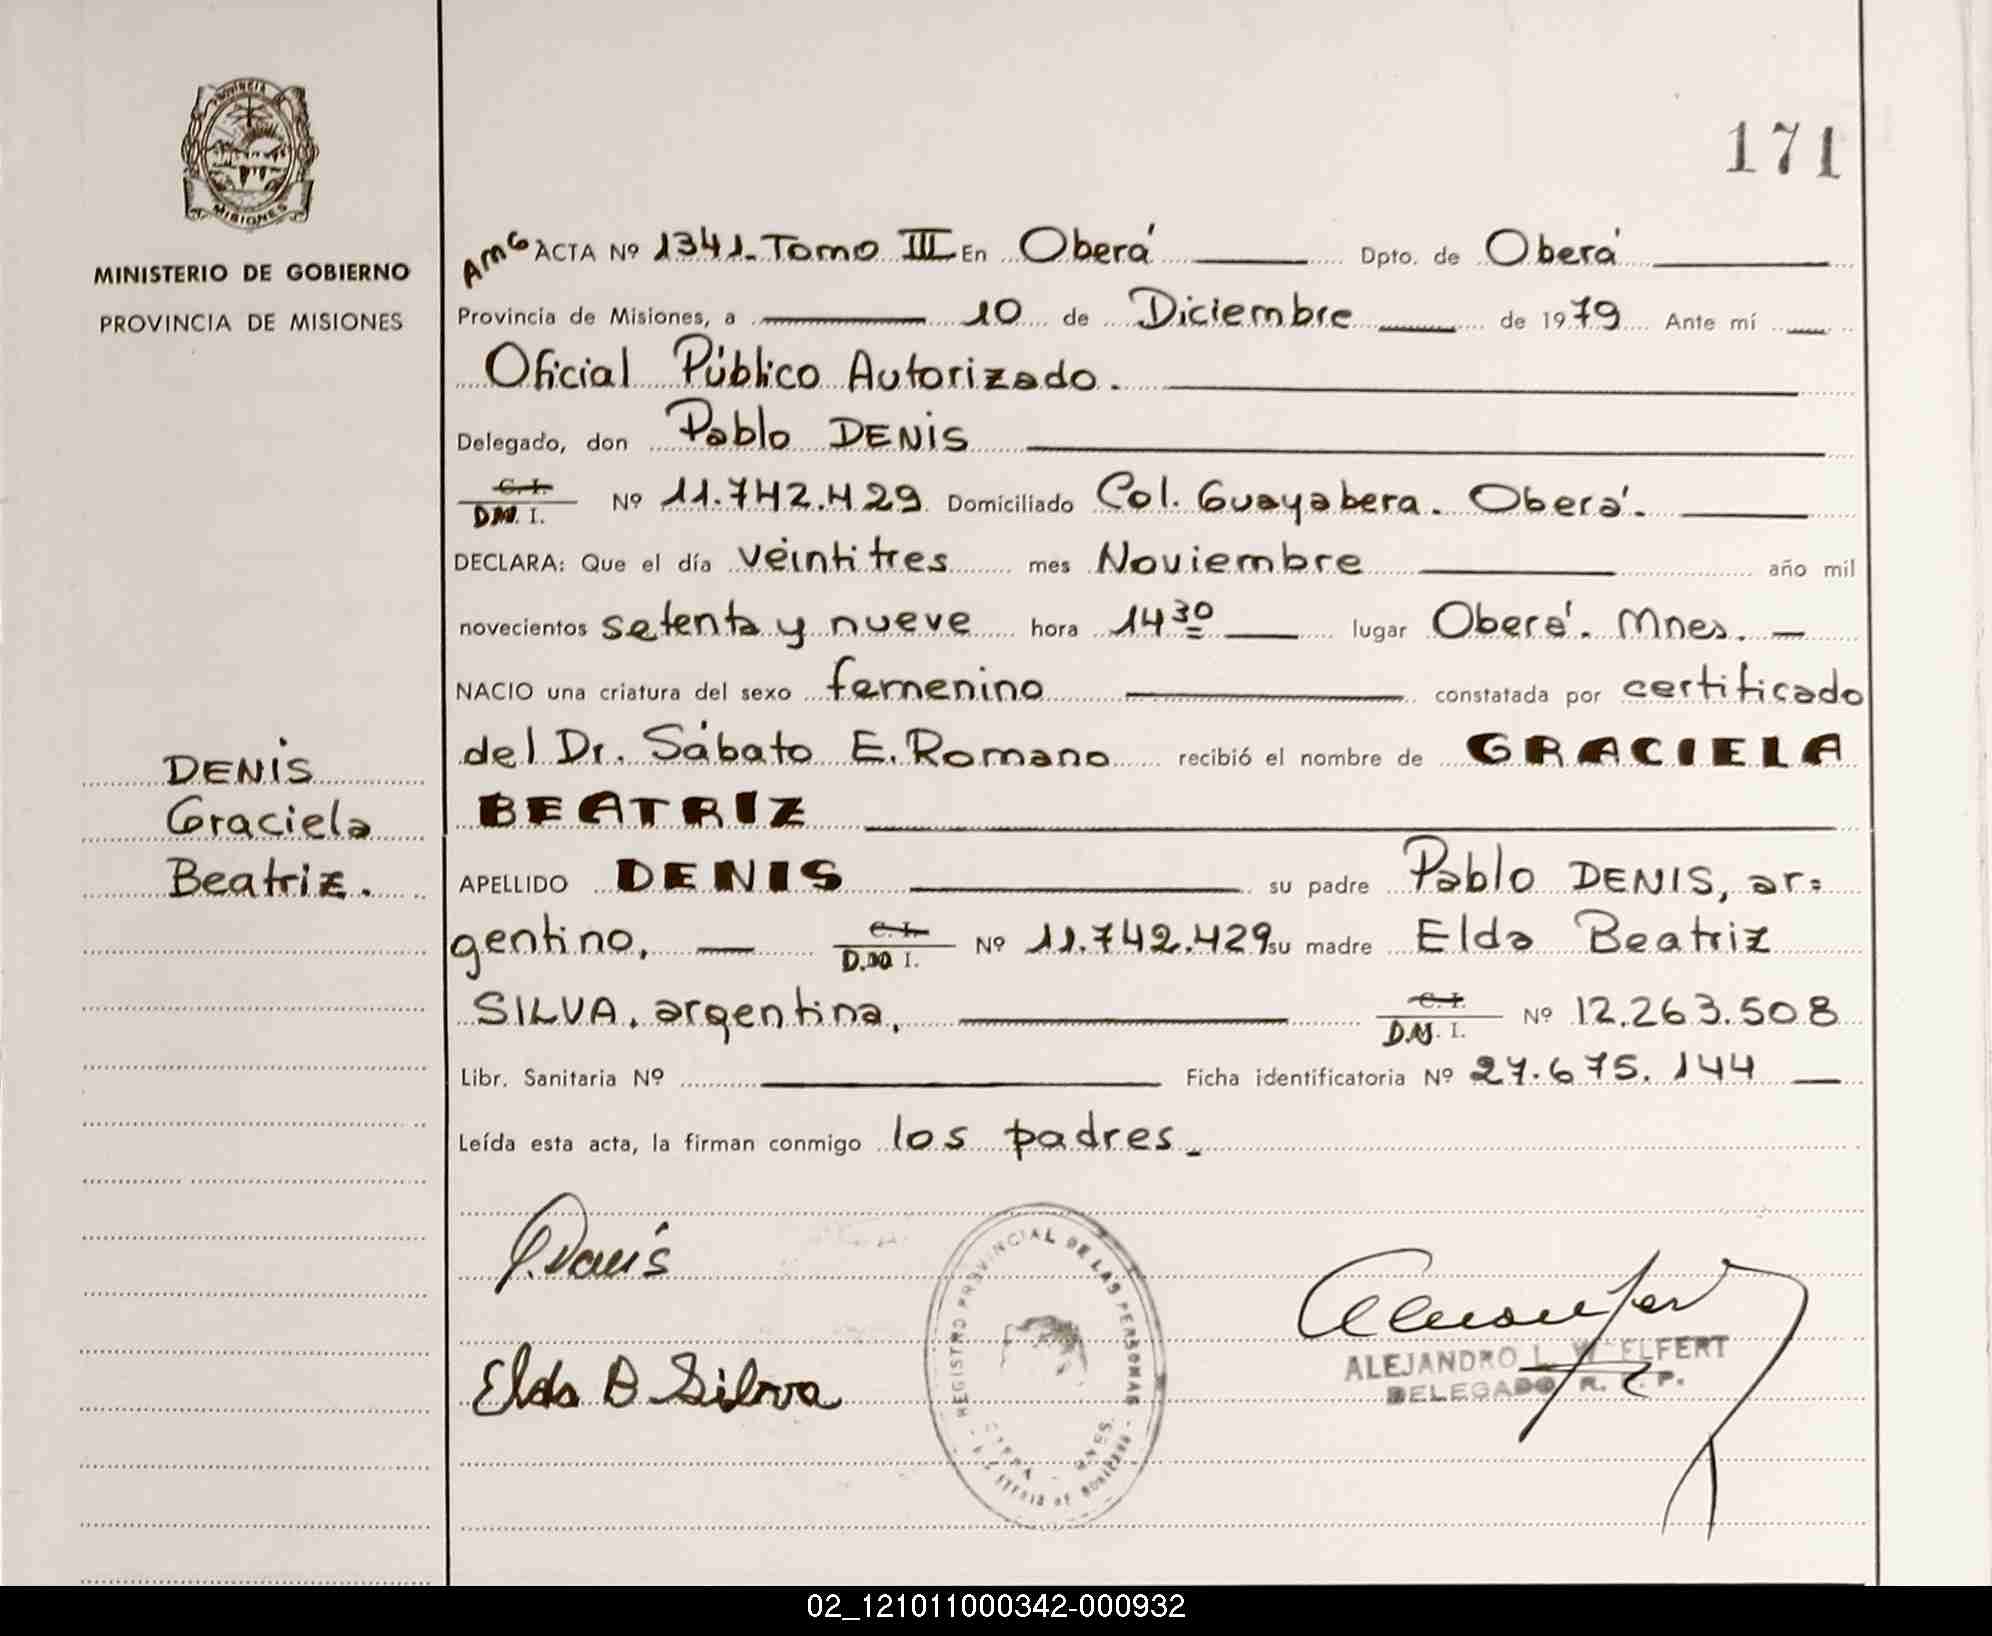 PROVINCIA
MISIONES
MINISTERIO DE GOBIERNO
PROVINCIA DE MISIONES
171
ACTA Nº 1341. Tomo III En Oberá Dpto. de Oberá
Provincia de Misiones, a 10 de Diciembre de 1979 Ante mí
Oficial Público Autorizado.
Delegado, don Pablo DENIS
C. I.
D.N. I. Nº 11.742.429 Domiciliado Col. Guayabera. Oberá.
DECLARA: Que el día veintitres mes Noviembre año mil
novecientos setenta y nueve hora 14 30 lugar Oberá. Mnes.
NACIO una criatura del sexo femenino constatada por certificado
del Dr. Sábato E. Romano recibió el nombre de GRACIELA
BEATRIZ
DENIS
Graciela
Beatriz.
APELLIDO DENIS su padre Pablo DENIS, ar=
gentino, C. I. Nº 11.742.429 su madre Elda Beatriz
D.N. I.
SILVA, argentina, C. I. Nº 12.263.508
D.N. I.
Libr. Sanitaria Nº Ficha identificatoria Nº 27.675.144
Leída esta acta, la firman conmigo los padres.
P. Denis
Elda B Silva
REGISTRO PROVINCIAL DE LAS PERSONAS
ALEJANDRO L. ELFERT
DELEGADO R. P.
02_121011000342-000932